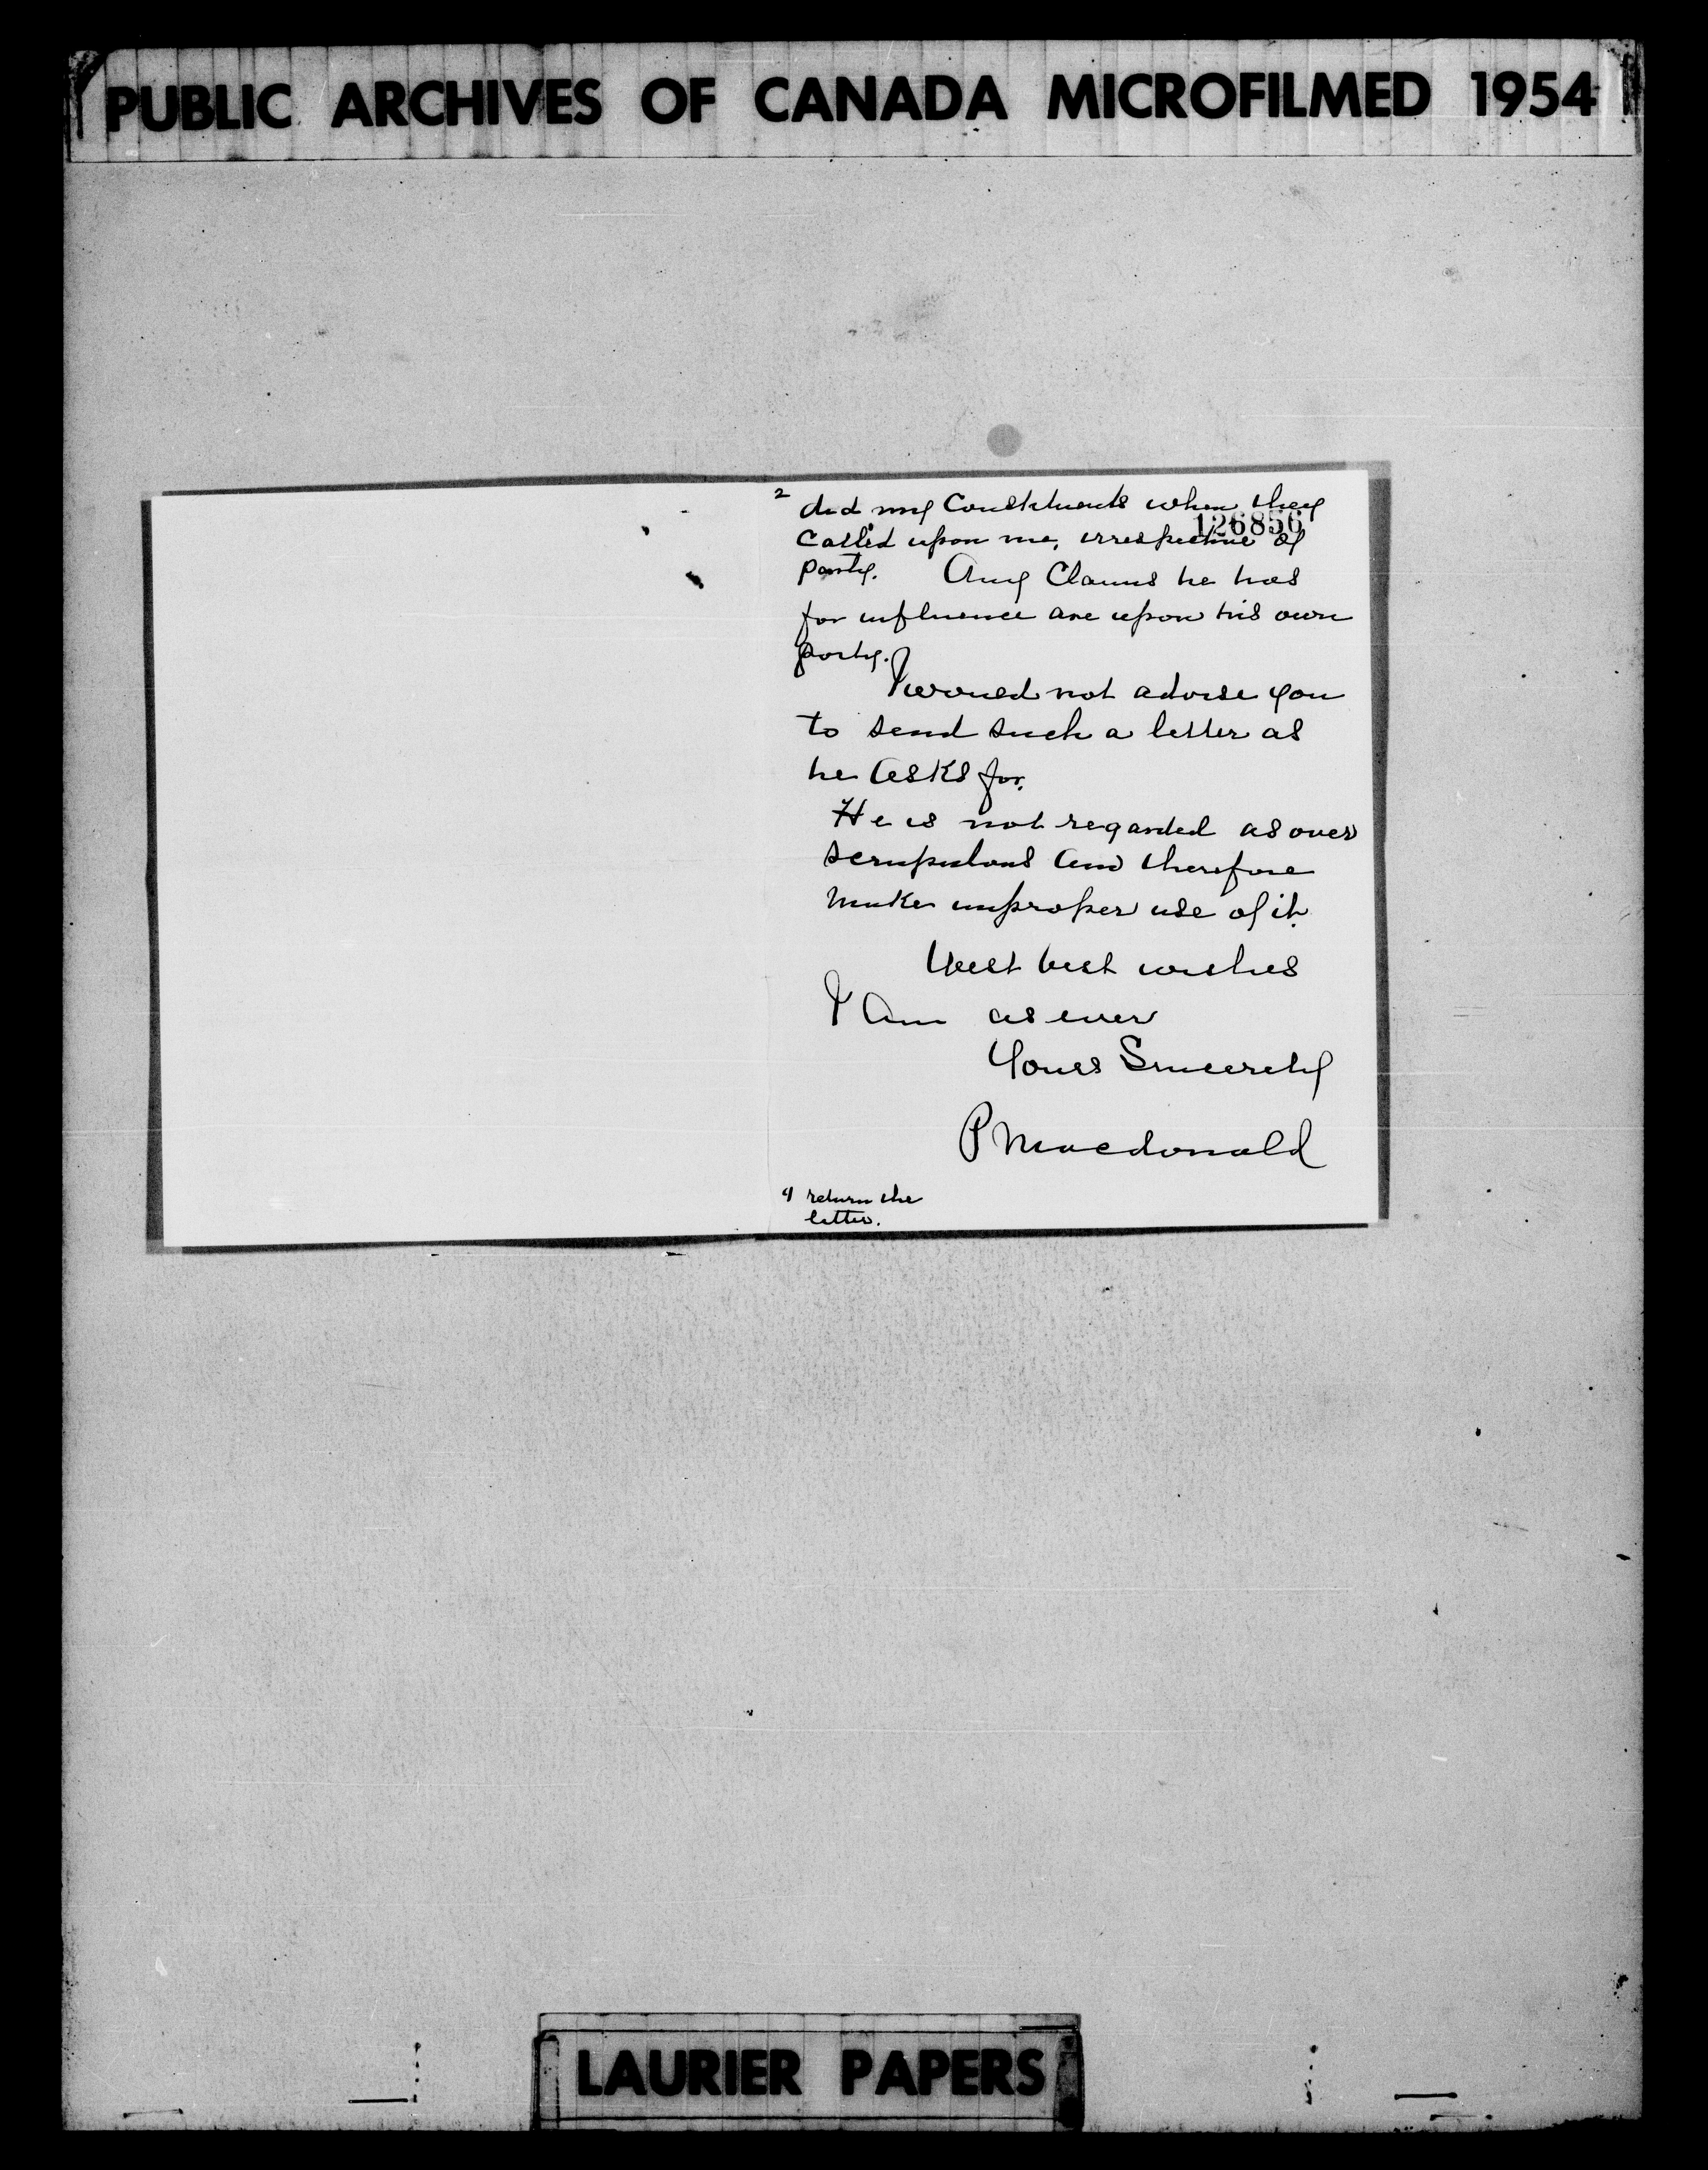 PUBLIC ARCHIVES OF CANADA MICROFILMED 1954
2
did my Constituents when they
126856
Called upon me, irrespective of
party. Any Claims he has
for influence are upon his own
party.
I would not advise you
to send such a letter as
he asks for.
He is not regarded as over
scrupulous and therefore
make improper use of it.
With best wishes
I am as ever
Yours Sincerely
P Macdonald
I return the
letter.
LAURIER PAPERS